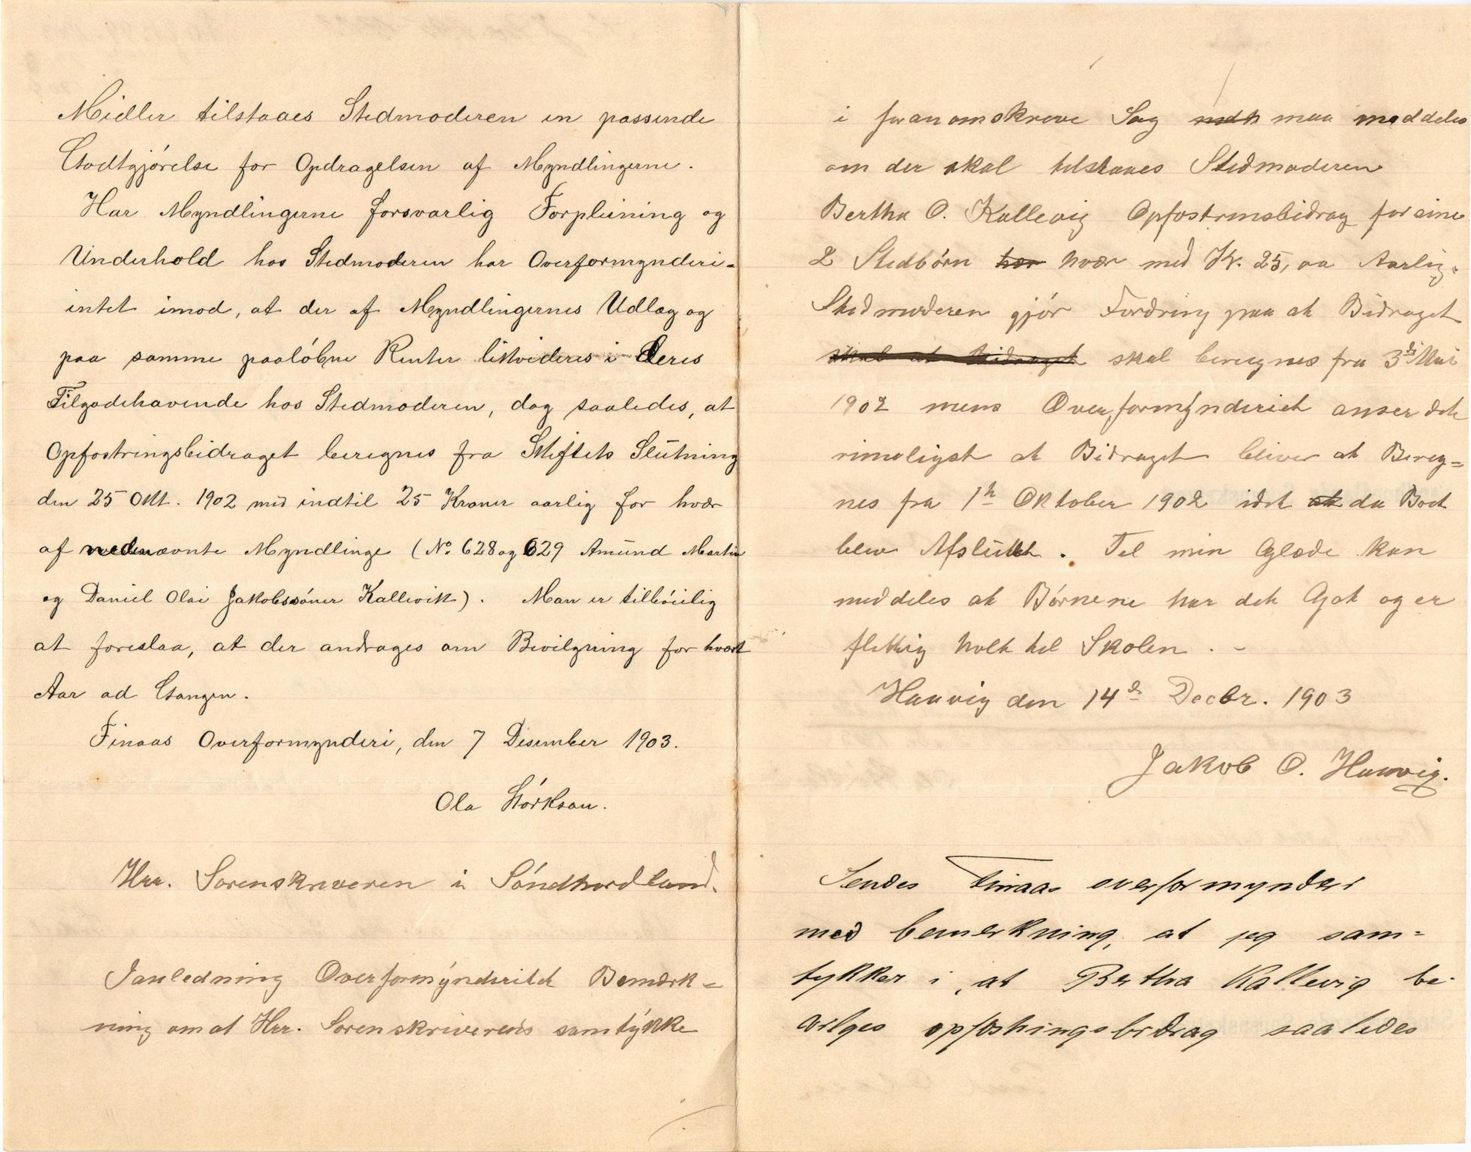 Midler tilstaaes Stedmoderen en passende
Godtgjörelse for Opdragelsen af Myndlingerne.
Har Myndlingerne forsvarlig Forpleining og
Underhold hos Stedmoderen har Overformynderi-
intet imod, at der af Myndlingernes Udlæg og
paa samme paalöbne Renter likvideres i Deres
Tilgodehavende hos Stedmoderen, dog saaledes, at
Opfostringsbidraget beregnes fra Skiftets Slutning
den 25 Okt. 1902 med indtil 25 Kroner aarlig for hvær
af nedennævnte Myndlinge (No. 628 og 629 Amund Martin
og Daniel Olai Jakobssöner Kallevik). Man er tilböielig
at foreslaa, at der andrages om Bevilgning for hvært
Aar ad Gangen.
Finaas Overformynderi, den 7 Desember 1903.
Ola Störkson.
Hrr. Sorenskriveren i Söndhordland.
I anledning Overformynderiets Bemærk=
ning om at Hrr. Sorenskriverens samtykke
i foranomskreve Sag maa meddeles
om der skal tilstaaes Stedmoderen
Bertha O. Kallevig Opfostrinsbidrag for sine
2 Stedbörn hvær med Kr. 25,00 Aarlig.
Stedmoderen gjör Fordring paa at Bidraget
skal at Bidraget skal beregnes fra 3die Mai
1902 mens Overformynderiet anser det
rimeligst at Bidraget bliver at Bereg=
nes fra 1te Oktober 1902 idet at da Boet
blev Afsluttet. Til min Glæde kan
meddeles at Börnene har det Got og er
flittig holt til Skolen. -
Haavig den 14de Decbr. 1903
Jakob O. Haavig.
Sendes Finaas overformynderi
med bemerkning, at jeg sam=
tykker i, at Bertha Kallevig be-
vilges opfostringsbidrag saaledes